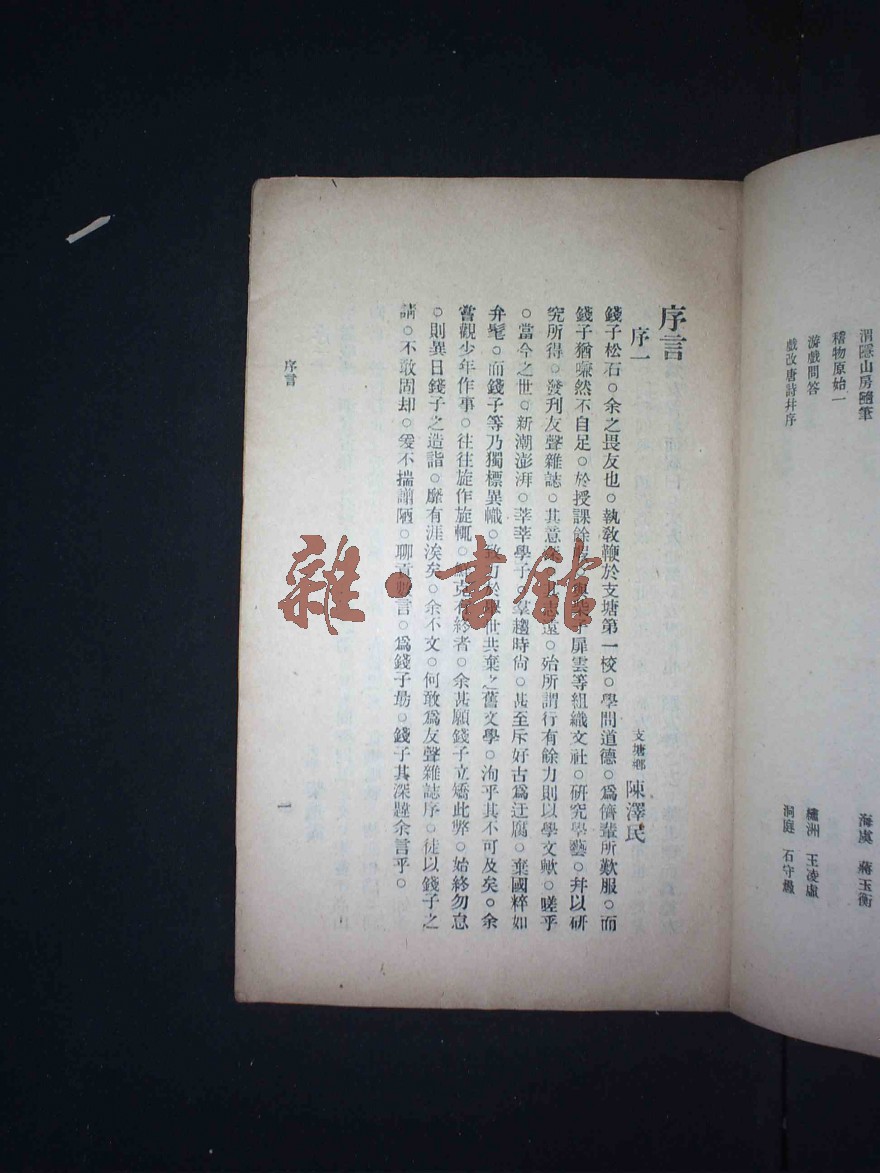 渭隱山房隨筆
海虞 蔣玉衡
稽物原始一
檇洲 王凌虛
游戲問答
洞庭 石守緘
戲改唐詩幷序
序言
序一
支塘鄉 陳澤民
錢子松石。余之畏友也。執敎鞭於支塘第一校。學問道德。爲儕輩所歎服。而
錢子猶慊然不自足。於授課餘 與柴子扉雲等組織文社。硏究學藝。幷以硏
究所得。發刊友聲雜誌。其意 其志遠。殆所謂行有餘力則以學文歟。嗟乎
。當今之世。新潮澎湃。莘莘學子。羣趨時尙。甚至斥好古爲迂腐。棄國粹如
弁髦。而錢子等乃獨標異幟。致力於擧世共棄之舊文學。洵乎其不可及矣。余
嘗觀少年作事。往往旋作旋輒。 克有終者。余甚願錢子立矯此弊。始終勿怠
。則異日錢子之造詣。靡有涯涘矣。余不文。何敢爲友聲雜誌序。徒以錢子之
請。不敢固却。爰不揣譾陋。聊貢數言。爲錢子勗。錢子其深韙余言乎。
序言
一
雜·書館